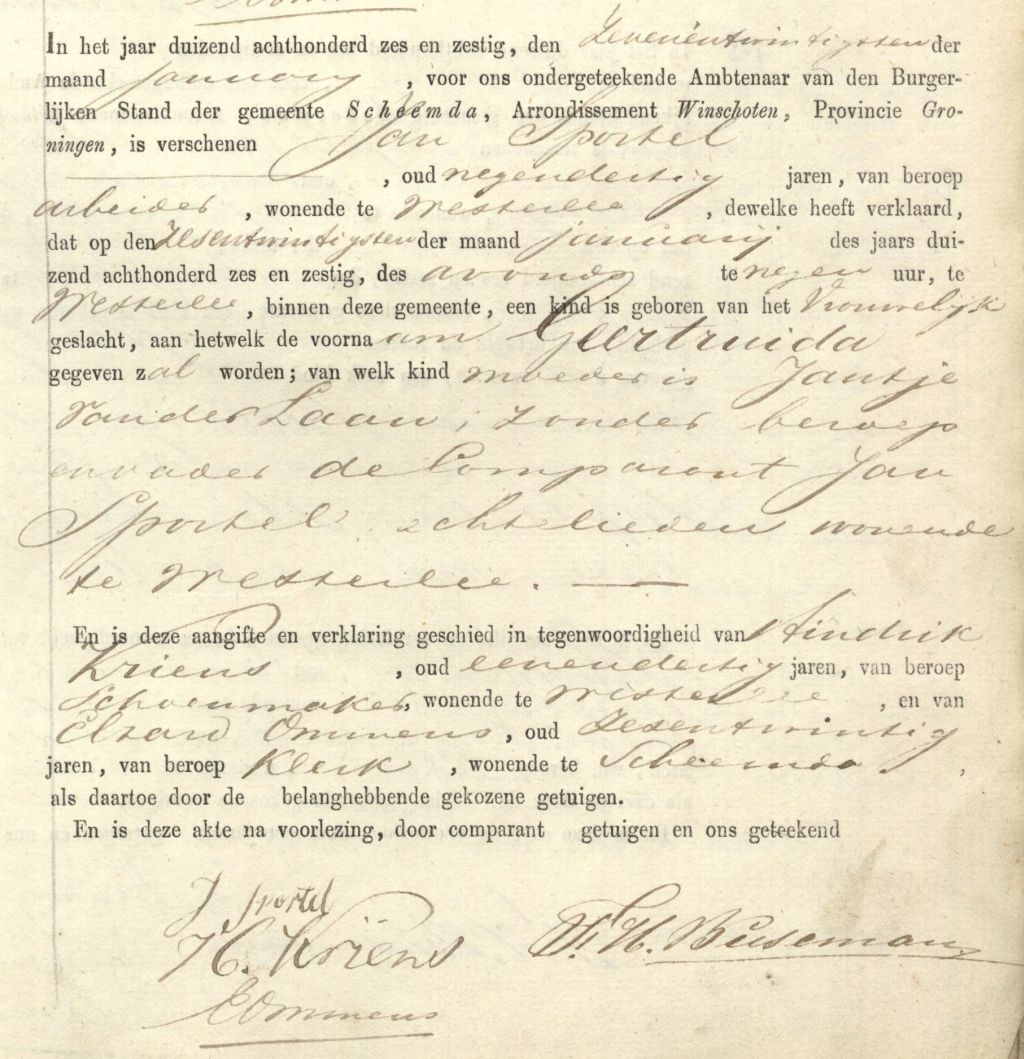 In het jaar duizend achthonderd zes en zestig, den Zevenentwintigsten der
maand January, voor ons ondergeteekende Ambtenaar van den Burger-
lijken Stand der gemeente Scheemda, Arrondissement Winschoten, Provincie Gro-
ningen, is verschenen Jan Sportel
, oud negendertig jaren, van beroep
arbeider, wonende te Westerlee, dewelke heeft verklaard,
dat op den Zesentwintigsten der maand januarij des jaars dui-
zend achthonderd zes en zestig, des avonds te negen uur, te
Westerlee, binnen deze gemeente, een kind is geboren van het Vrouwelijk
geslacht, aan hetwelk de voornaam Geertruida
gegeven zal worden; van welk kind moeder is Jantje
van der Laan, zonder beroep
en vader de Comparant Jan
Sportel echtelieden wonende
te Westerlee.
En is deze aangifte en verklaring geschied in tegenwoordigheid van Hindrik
Kriens, oud eenendertig jaren, van beroep
Schoenmaker, wonende te Westerlee, en van
Elzard Ommens, oud Zesentwintig
jaren, van beroep Klerk, wonende te Scheemda,
als daartoe door de belanghebbende gekozene getuigen.
En is deze akte na voorlezing, door comparant getuigen en ons geteekend
J Sportel
H. Kriens
H. Buseman
E Ommens